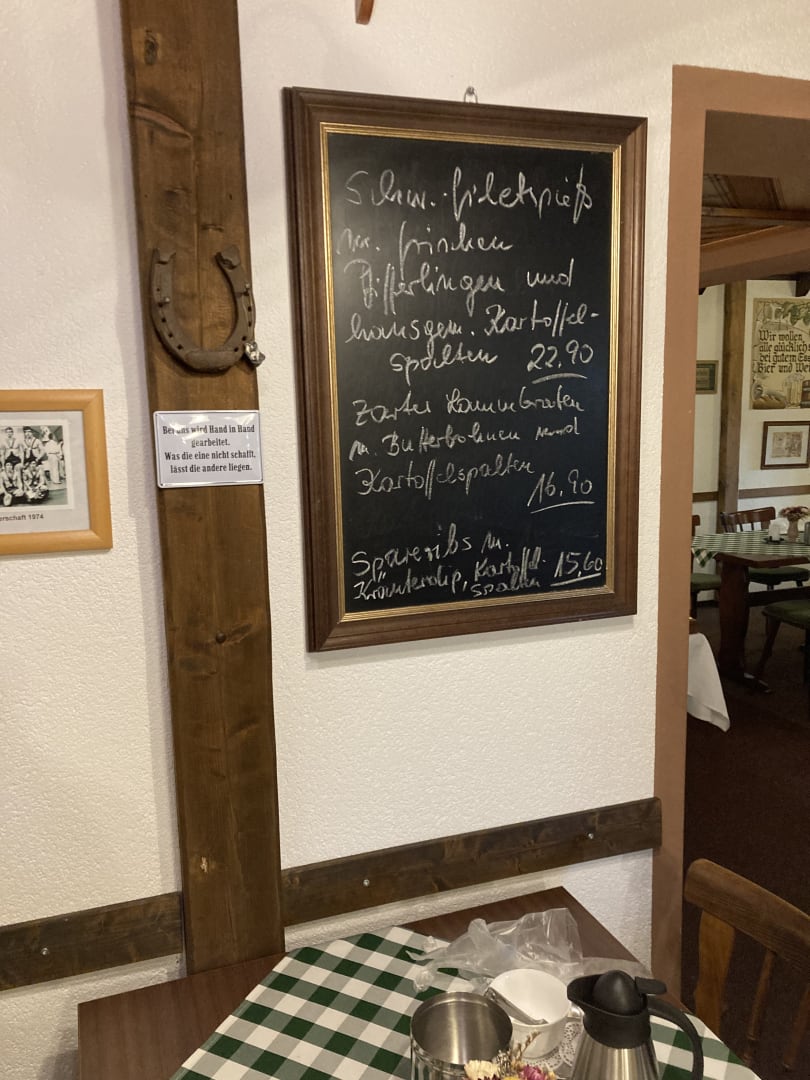 Schw. Filetspieß
m. frischen
Pfifferlingen und
hausgem. Kartoffel-
spalten 22.90
zarter Lammbraten
m. Butterbohnen und
Kartoffelspalten
16.90
Spareribs m.
Kräuterdip, Kartoffel-
spalten 15,60
Bei uns wird Hand in Hand
gearbeitet.
Was die eine nicht schafft,
lässt die andere liegen.
erschaft 1974
Wir wollen
alle glücklich
bei gutem Ess
Bier und Wei